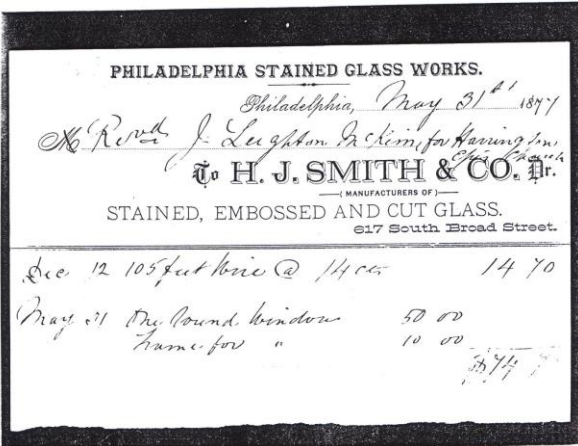 PHILADELPHIA STAINED GLASS WORKS.
Philadelphia, May 31st 1877
M Revd J Leighton McKim, for Harrington
Epis Church
To H. J. SMITH & CO. Dr.
( MANUFACTURERS OF )
STAINED, EMBOSSED AND CUT GLASS.
617 South Broad Street.
Dec 12 105 feet Wire @ 14 cts 14 70
May 31 One Round Window 50 00
frame for " 10 00
$74